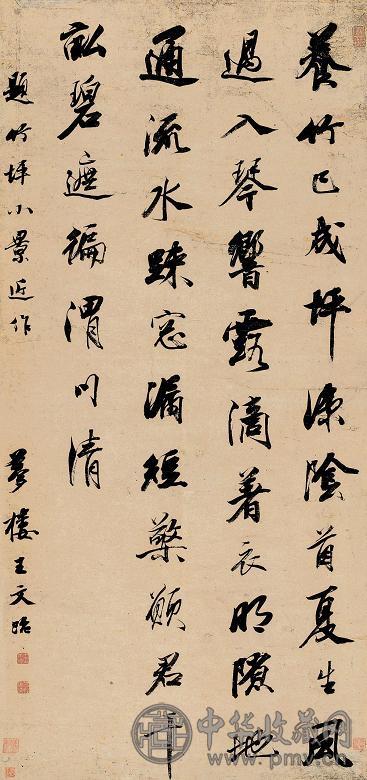 養竹已成坪凉陰首夏生風
過入琴響露滴著衣明隙地
通流水疎窓漏短檠願君千
畝碧遮徧渭川清
題竹坪小景近作 夢樓王文治
中华收藏网